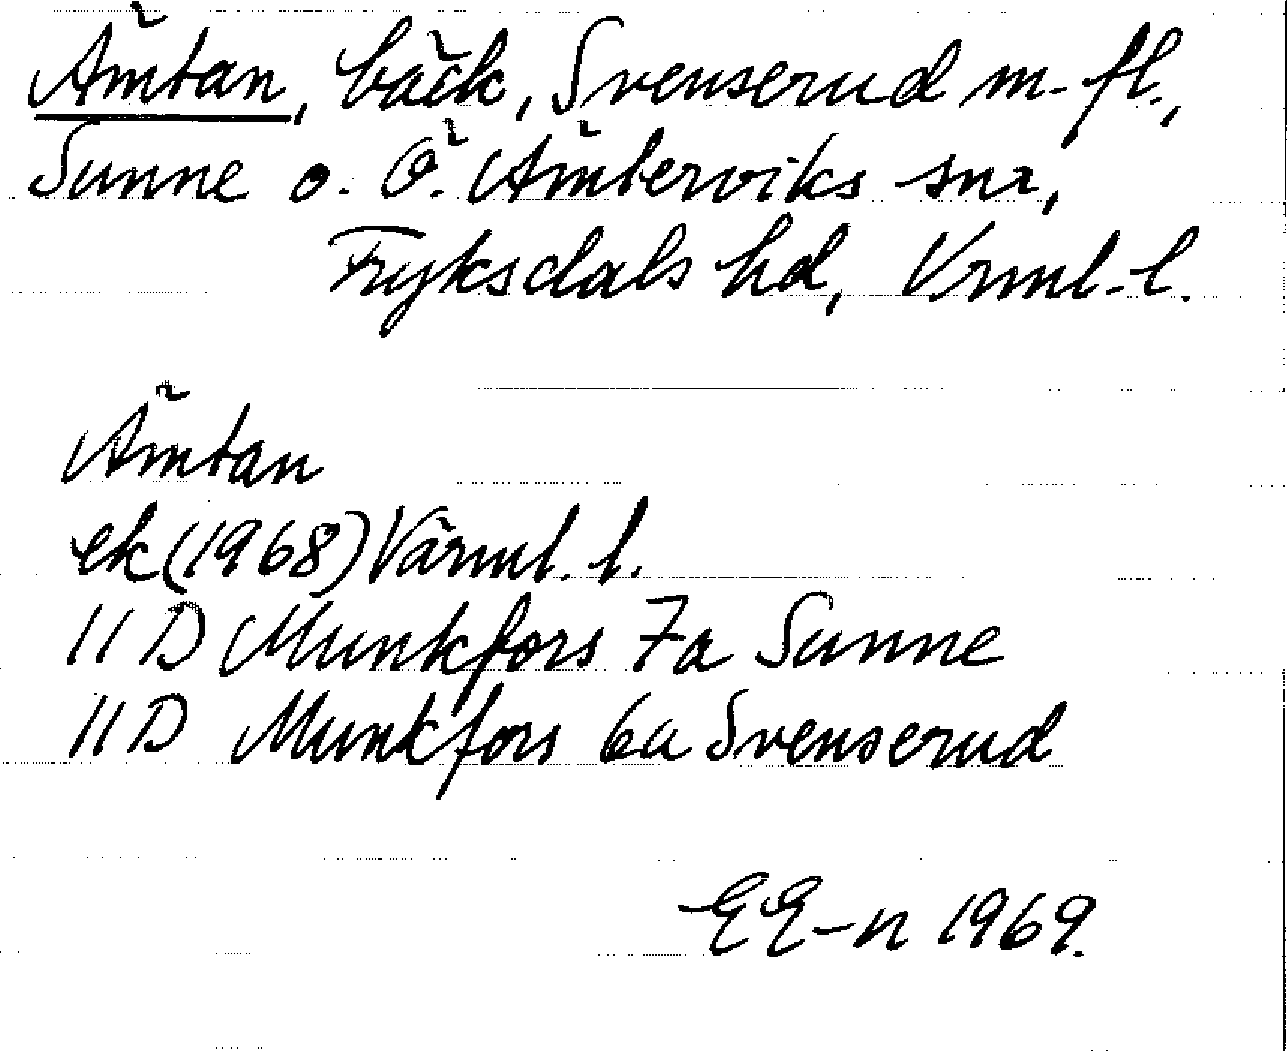 Ämtan, bäck, Svenserud m. fl.,
Sunne o. Ö. Ämterviks snr,
Fryksdals hd, Vrml. l.
Ämtan
ek (1968) Värml. l.
11 D Munkfors 7a Sunne
11 D Munkfors 6a Svenserud
EE-n 1969.